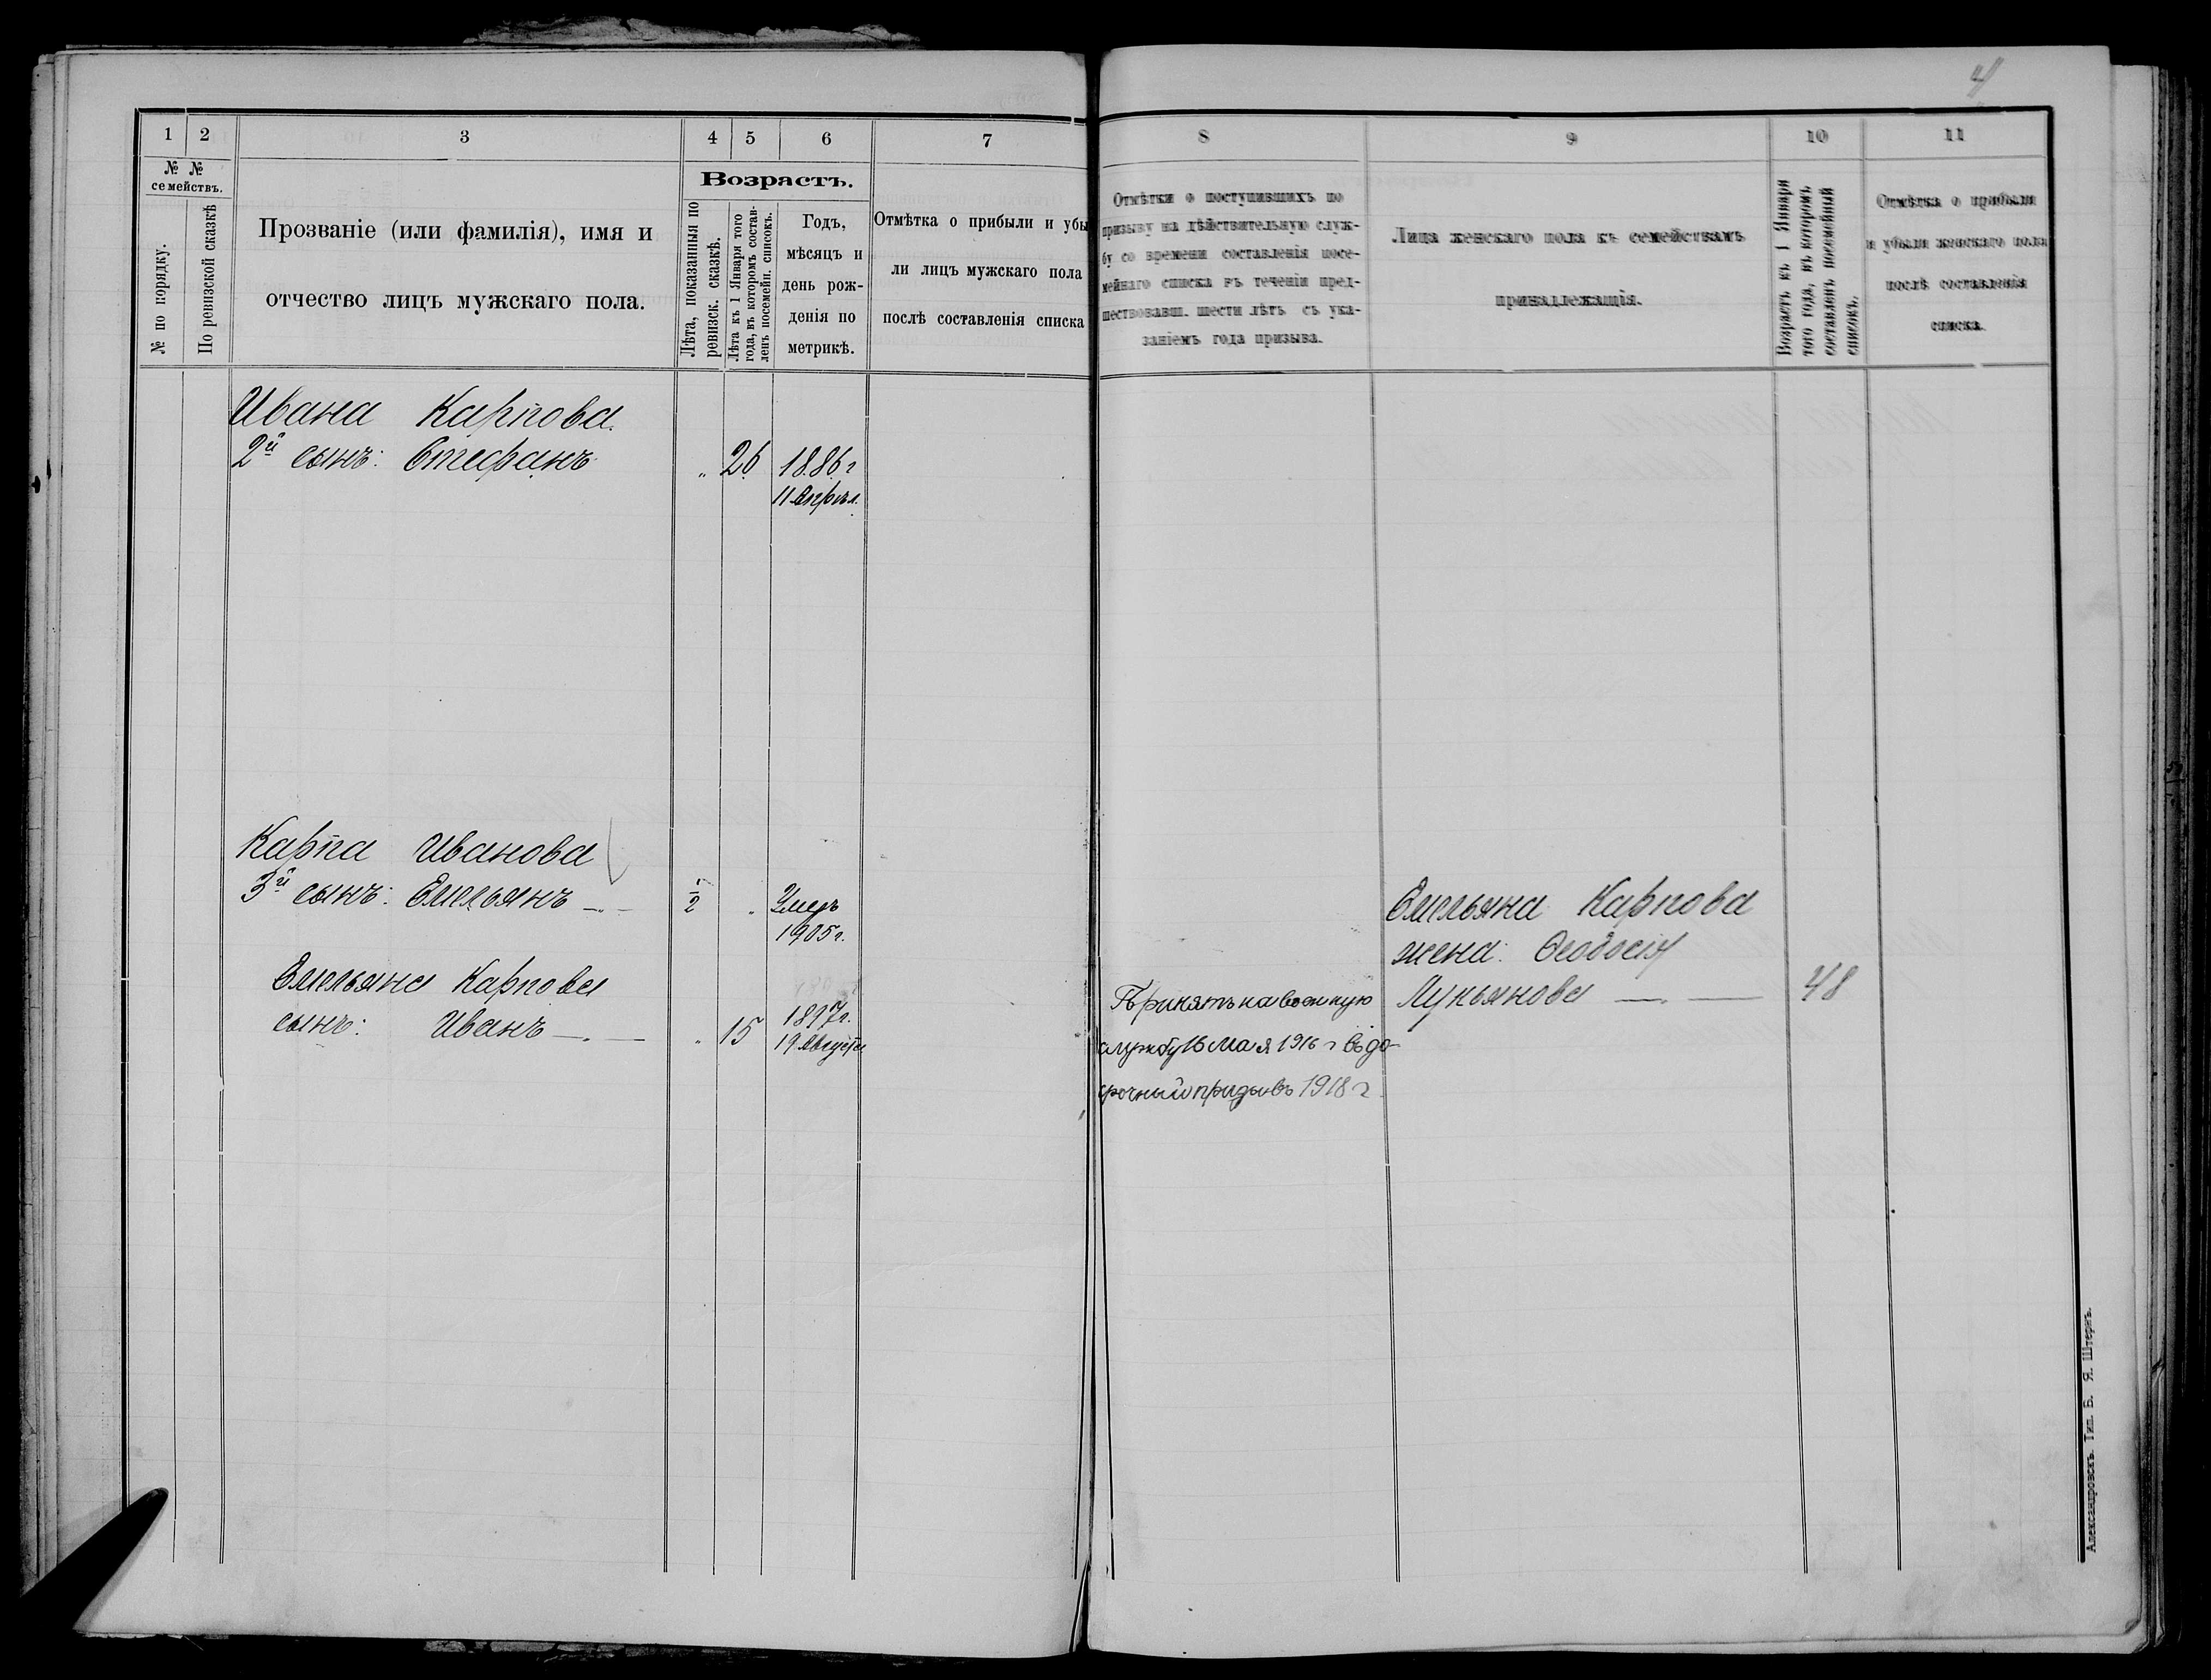 4
1
2
3
4
5
6
7
№ №
семействъ.
№ по порядку.
По ревизской сказкѣ
Прозваніе (или фамилія), имя и
отчество лицъ мужскаго пола.
Возрастъ.
Лѣта, показанныя по
ревизск. сказкѣ.
Лѣта къ 1 Января того
года, въ которомъ состав-
ленъ посемейн. списокъ.
Годъ,
мѣсяцъ и
день рож-
денія по
метрикѣ.
Отмѣтка о прибыли и убы
ли лицъ мужскаго пола
послѣ составленія списка
8
9
10
11
Отмѣтки о поступившихъ по
призыву на дѣйствительную служ-
бу со времени составленія посе-
мейнаго списка въ теченіи пред-
шествовавш. шести лѣтъ съ ука-
заніемъ года призыва.
Лица женскаго пола къ семействамъ
принадлежащія.
Возрастъ къ 1 Января
того года, въ которомъ
составленъ посемейный
списокъ.
Отмѣтка о прибыли
и убыли женскаго пола
послѣ составленія
списка.
Ивана Карпова.
2й сынъ: Стефанъ " 26 1886 г
11 Апрѣл.
Карпа Иванова
3й сынъ: Емельянъ — 1/2 " Умеръ
1905 г.
Емельяна Карпова
сынъ: Иванъ — " 15 1897 г.
19 Августа
Принятъ на военную
службу 16 Мая 1916 г въ до-
срочный призывъ 1918 г.
Емельяна Карпова
жена: Ѳеодосія
Лукьянова — 48
Александровскъ. Тип. Б. Я. Штернъ.